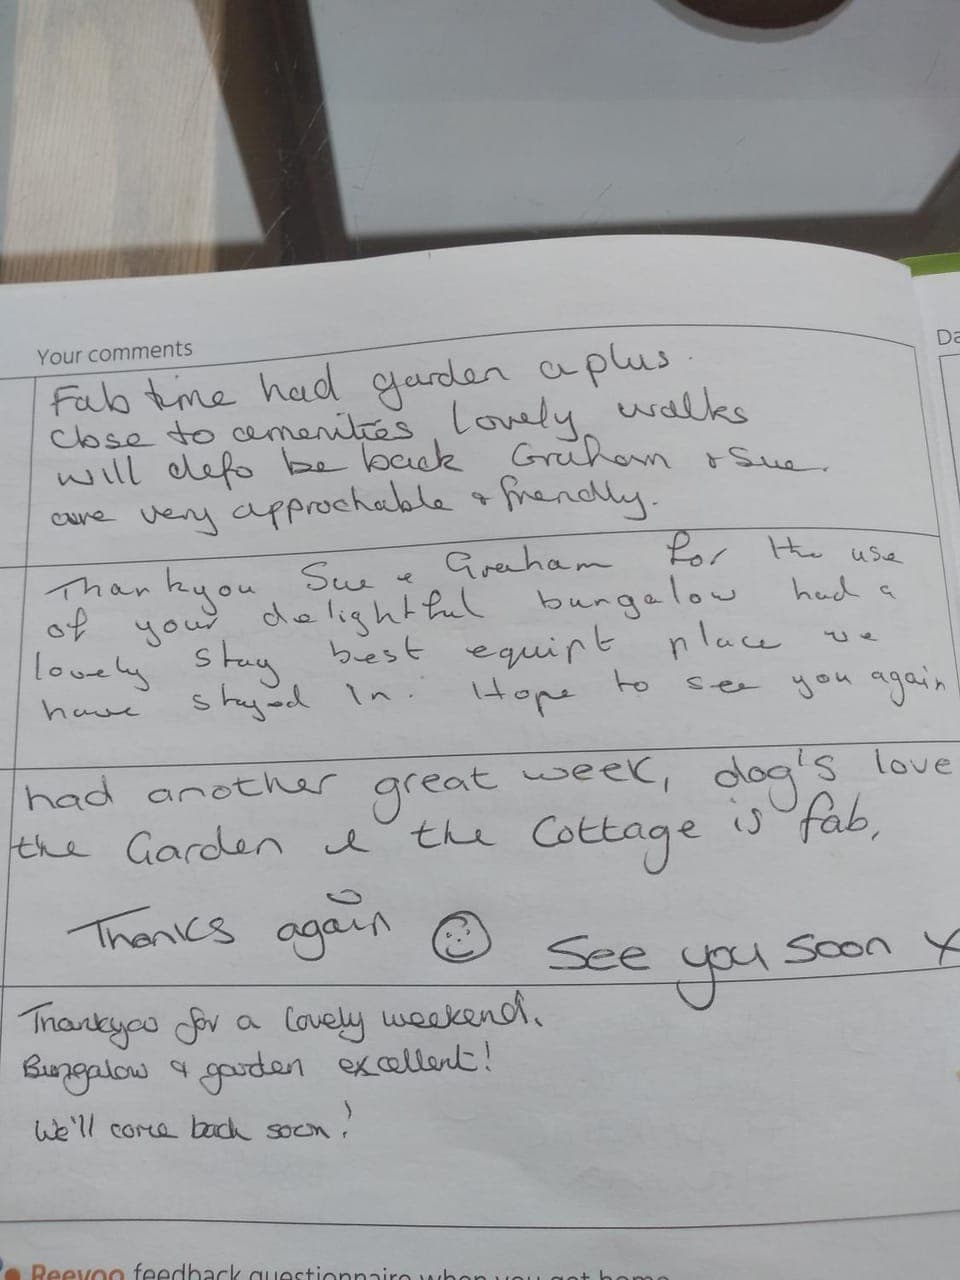 Your comments
Da
Fab time had garden a plus.
close to amenities, Lovely walks
will defo be back Graham & Sue.
are very approchable & friendly.
Thankyou Sue & Graham for the use
of your delightful bungalow had a
lovely stay best equipt place we
have stayed in. Hope to see you again
had another great week, dog's love
the Garden & the Cottage is fab,
Thanks again ☺ See you soon x
Thankyou for a lovely weekend.
Bungalow & garden excellent!
We'll come back soon!
Reevoo feedback questionnaire when you get home